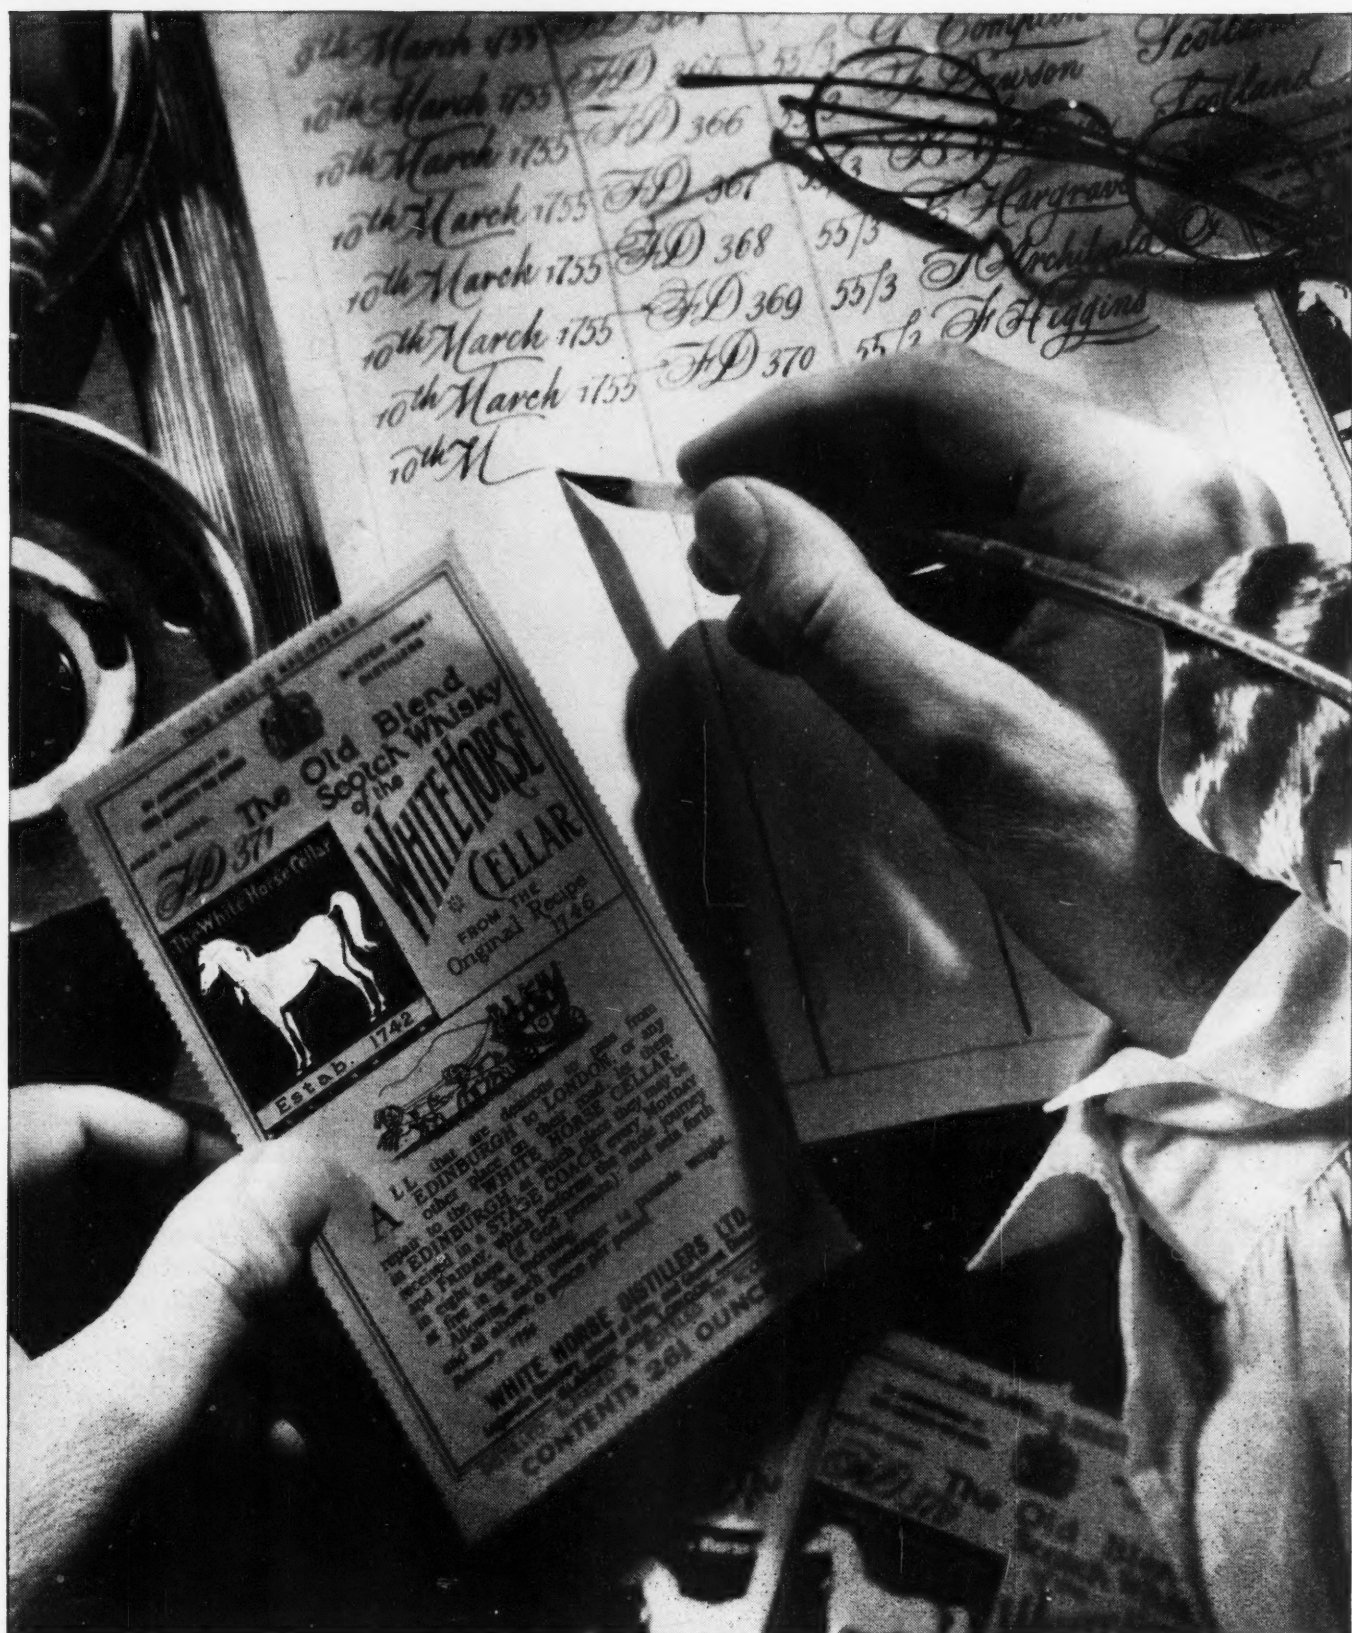 9th March 1755 FD 364 G Compton Scotland
10th March 1755 FD 365 55/3 Dawson Scotland
10th March 1755 FD 366
10th March 1755 FD 367 Hargrave
10th March 1755 FD 368 55/3 Archibald
10th March 1755 FD 369 55/3 F Higgins
10th March 1755 FD 370
10th M
The Old Blend
Scotch Whisky
of the
WHITE HORSE
CELLAR
FROM THE
Original Recipe
1746
FD 371
The White Horse Cellar
Estab. 1742
ALL that are desirous to pass from
EDINBURGH to LONDON, or any
other place on their road let them
repair to the WHITE HORSE CELLAR
in EDINBURGH, at which place they may be
received in a STAGE COACH every MONDAY
and FRIDAY, which performs the whole journey
in eight days (if God permits), and sets forth
at five in the morning.
Allowing each passenger 14 pounds weight
and all above, 6 pence per pound
February, 
WHITE HORSE DISTILLERS LTD.
CONTENTS 26 OUNCES
The Old Blend